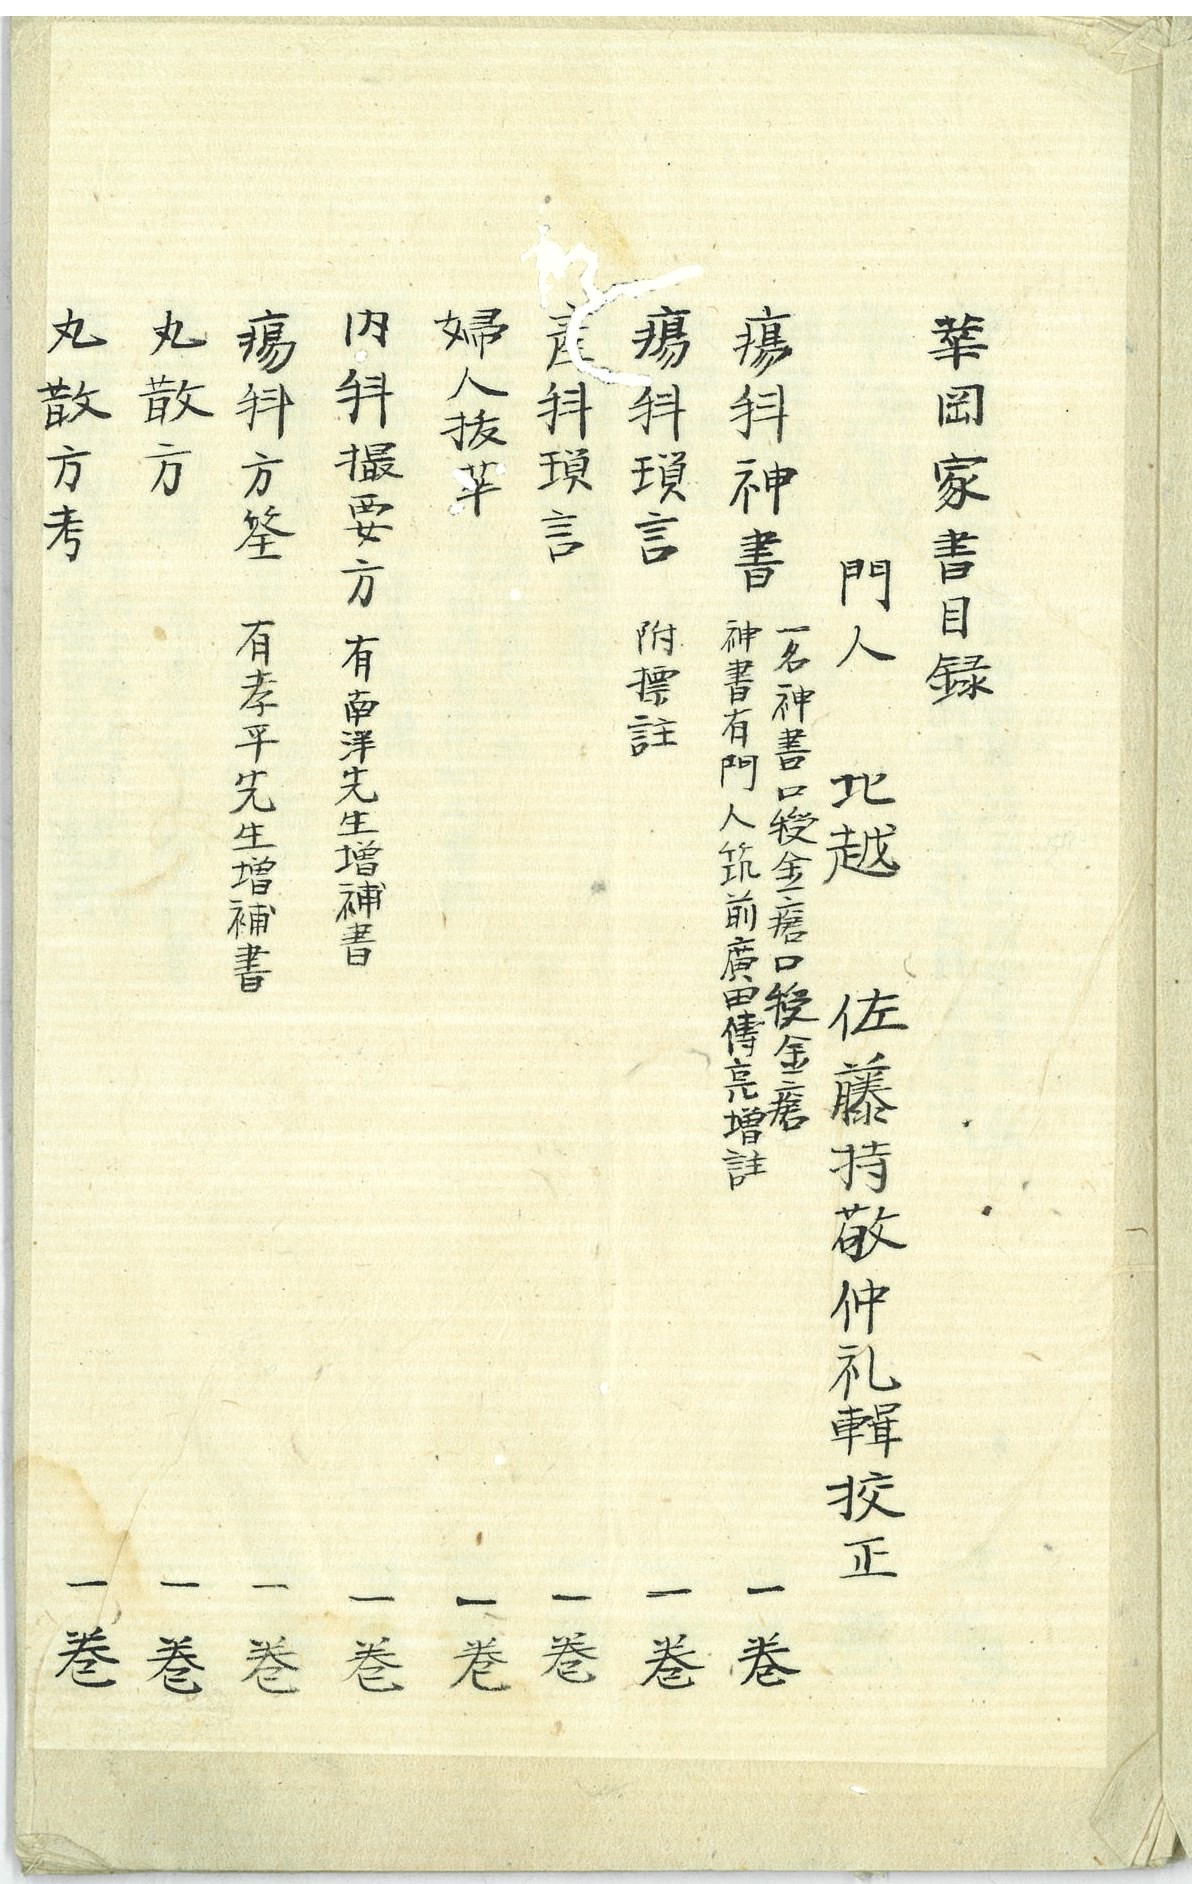 華岡家書目録
門人 北越 佐藤持敬仲礼輯挍正
瘍科神書 一名神書口授金瘡口授金瘡 一巻
神書有門人筑前廣田傳亮增註
瘍科瑣言 附標註 一巻
産科瑣言 一巻
婦人抜萃 一巻
内科撮要方 有南洋先生增補書 一巻
瘍科方筌 有孝平先生增補書 一巻
丸散方 一巻
丸散方考 一巻